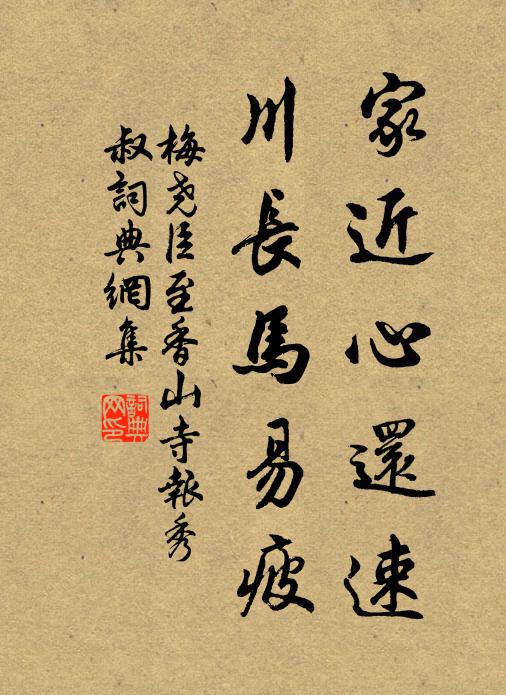 家近心還速
川長馬易疲
梅堯臣至香山寺報秀
叔詞典網集
詞典
网印